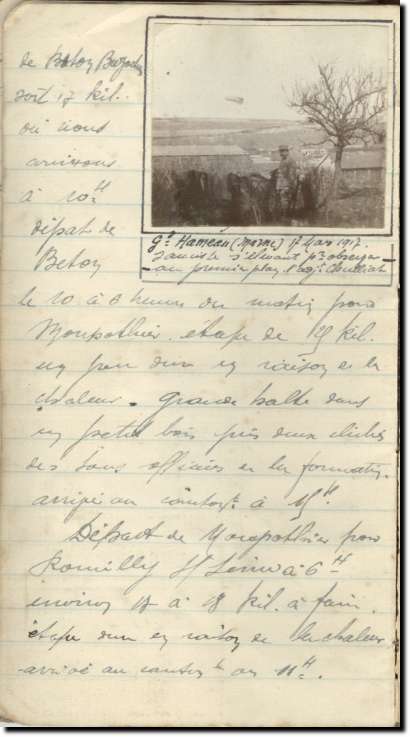 de Beton Bazoches
soit 17 kil.
où nous
arrivons
à 10H
départ de
Beton
Gd Hameau (Marne) 17 Mars 1917.
Saucisse s'élevant pr observer
au premier plan l'adjt
le 10 à 6 heures du matin pour
Montpothier. étape de 19 kil.
un peu dure en raison de la
chaleur. Grande halte dans
un petit bois pris deux clichés
des sous officiers de la formation.
arrivée au contont à 15H.
Départ de Montpothier pour
Romilly S/ Seine à 6H
environ 17 à 18 kil. à faire.
étape dure en raison de la chaleur.
arrivée au cantont à 11H.